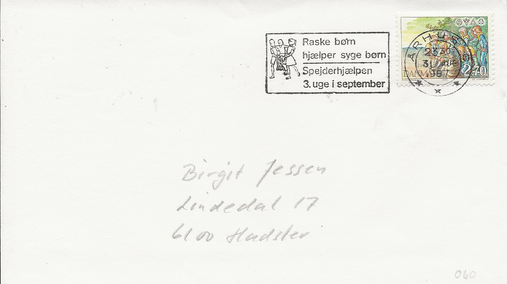 Raske børn
hjælper syge børn
Spejderhjælpen
3. uge i september
ÅRHUS C
1987
DANMARK
2.40
Birgit Jessen
Lindedal 17
6100 Haderslev
060